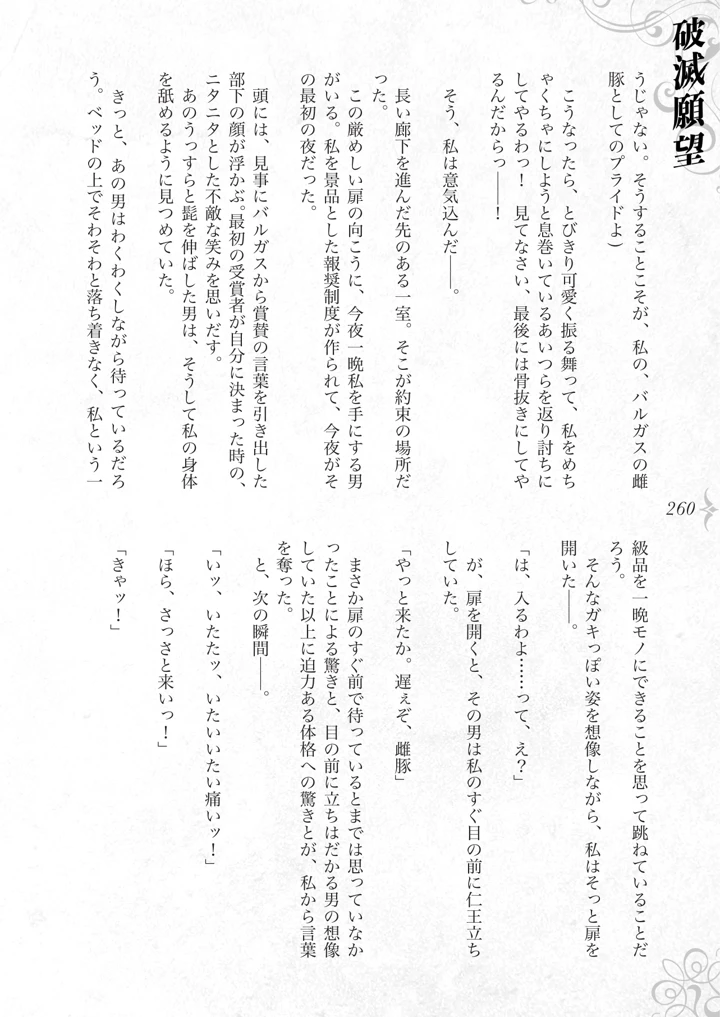 破滅願望
うじゃない。そうすることこそが、私の、バルガスの雌
豚としてのプライドよ）
こうなったら、とびきり可愛く振る舞って、私をめち
ゃくちゃにしようと息巻いているあいつらを返り討ちに
してやるわっ！　見てなさい、最後には骨抜きにしてや
るんだからっ――！
そう、私は意気込んだ――。
長い廊下を進んだ先のある一室。そこが約束の場所だ
った。
この厳めしい扉の向こうに、今夜一晩私を手にする男
がいる。私を景品とした報奨制度が作られて、今夜がそ
の最初の夜だった。
頭には、見事にバルガスから賞賛の言葉を引き出した
部下の顔が浮かぶ。最初の受賞者が自分に決まった時の、
ニタニタとした不敵な笑みを思いだす。
あのうっすらと髭を伸ばした男は、そうして私の身体
を舐めるように見つめていた。
きっと、あの男はわくわくしながら待っているだろ
う。ベッドの上でそわそわと落ち着きなく、私という一
級品を一晩モノにできることを思って跳ねていることだ
ろう。
そんなガキっぽい姿を想像しながら、私はそっと扉を
開いた――。
「は、入るわよ……って、え？」
が、扉を開くと、その男は私のすぐ目の前に仁王立ち
していた。
「やっと来たか。遅ぇぞ、雌豚」
まさか扉のすぐ前で待っているとまでは思っていなか
ったことによる驚きと、目の前に立ちはだかる男の想像
していた以上に迫力ある体格への驚きとが、私から言葉
を奪った。
と、次の瞬間――。
「いッ、いたたッ、いたいいたい痛いッ！」
「ほら、さっさと来いっ！」
「きゃッ！」
260